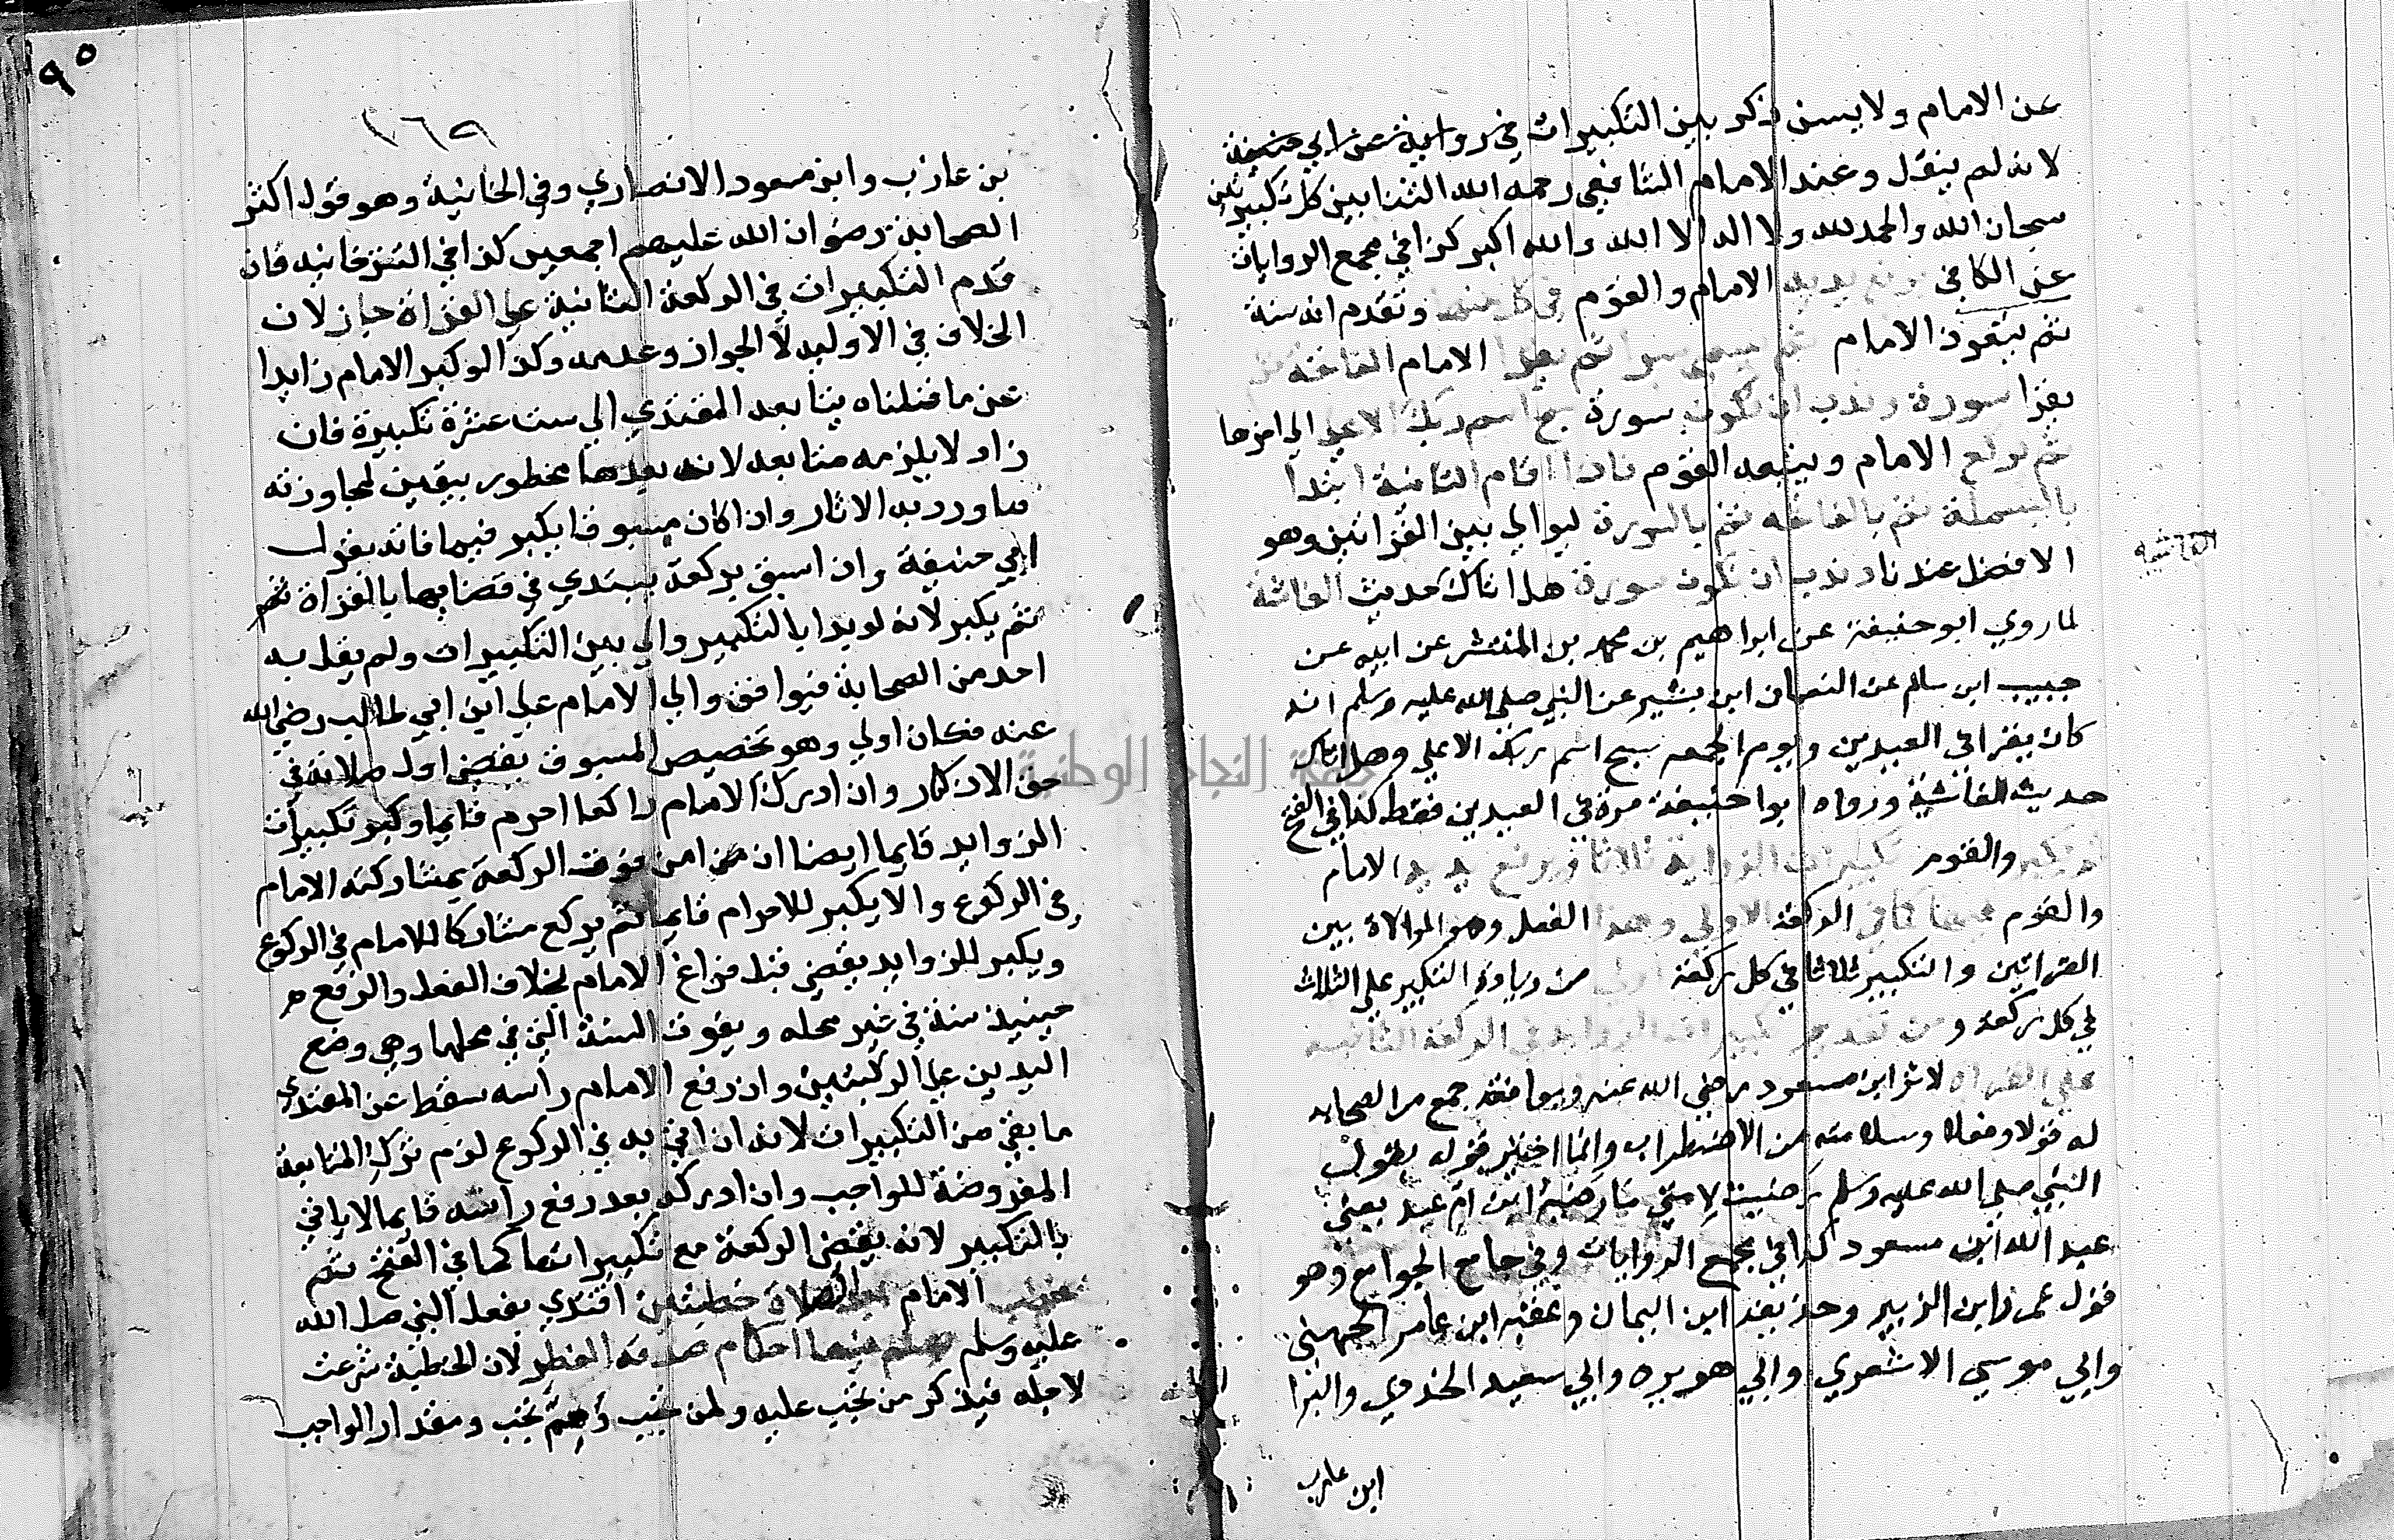 عن الامام ولا يسن ذكر بين التكبيرات في رواية عن ابي حنيفة
لانه لم ينقل وعند الامام الشافعي رحمه الله الثنا بين كل تكبيرتين
سبحان الله والحمد لله ولا اله الا الله والله اكبر كذا في مجمع الروايات
عن الكافي يرفع يديه الامام والقوم في كل منها وتقدم انه سنة
ثم يتعوذ الامام ثم يسمي سرا ثم يقرا الامام الفاتحة ثم
يقرا سورة وندب ان تكون سورة سبح اسم ربك الاعلي الي اخرها
ثم يركع الامام ويتبعه القوم فاذا قام للثانية ابتدا
بالبسملة ثم بالفاتحه ثم بالسورة ليوالي بين القراتين وهو
الافضل عندنا وندب ان تكون سورة هل اتاك حديث الغاشية
الغاشيه
لما روي ابو حنيفة عن ابراهيم بن محمد بن المنتشر عن ابيه عن
حبيب ابن سالم عن النعمان ابن بشير عن النبي صلي الله عليه وسلم انه
كان يقرا في العيدين ويوم الجمعه سبح اسم ربك الاعلي وهل اتاك
حديث الغاشية ورواه ابوا حنيفة مرة في العيدين فقط كذا في الفتح
ثم يكبر والقوم تكبيرات الزوايد ثلاثا ويرفع يديه الامام
والقوم فيها كما في الركعة الاولي وهذا الفعل وهو الموالاة بين
القراتين والتكبير ثلاثا في كل ركعة اولي من زيادة التكبير علي الثلاث
في كل ركعة ومن تقديم تكبيرات الزوايد في الركعة الثانية
علي القراه لاثر ابن مسعود رضي الله عنه وموافقة جمع من الصحابه
له قولا وفعلا وسلامته من الاضطراب وانما اختير قوله بقول
النبي صلي الله عليه وسلم رضيت لامتي ما رضيه ابن ام عبد يعني
عبد الله ابن مسعود كذا في مجمع الروايات وفي جامع الجوامع وهو
قول عمر وابن الزبير وحذيفة ابن اليمان وعقبه ابن عامر الجهني
وابي موسي الاشعري وابي هويره وابي سعيد الخدري والبرا
ابن عازب
٩٥
١٦٥
بن عازب وابن مسعود الانصاري وفي الخانية وهو قول اكثر
الصحابة رضوان الله عليهم اجمعين كذا في التترخانيه فان
قدم التكبيرات في الركعة الثانية علي القراة جاز لان
الخلاف في الاولية لا الجواز وعدمه وكذا لو كبر الامام زايدا
عن ما قلناه يتابعه المقتدي الي ست عشرة تكبيرة فان
زاد لا يلزمه متابعه لانه بعدها محظور بيقين لمجاوزته
ما ورد به الاثار واذا كان مسبوقا يكبر فيما فاته بقول
ابي حنيفة وان اسبق بركعة يبتدي في قضايها بالقراة ثم
ثم يكبر لانه لو بدا بالتكبير والي بين التكبيرات ولم يقل به
احد من الصحابة فيوافق والي الامام علي ابن ابي طالب رضي الله
عنه فكان اولي وهو تخصيص المسبوق يقضي اول صلاته في
حق الاذكار وان ادرك الامام راكعا احرم قايما وكبر تكبيرات
الزوايد قايما ايضا ان امن فوت الركعة بمشاركته الامام
في الركوع والا يكبر للاحرام قايما ثم يركع مشاركا للامام في الركوع
ويكبر للزوايد يقضي قبل فراغ الامام بخلاف الفعل والرفع
حينيذ سنة في غير محله ويفوت السنة التي في محلها وهي وضع
اليدين علي الركبتين وان رفع الامام راسه سقط عن المقتدي
ما بقي من التكبيرات لانه ان اتي به في الركوع لزم ترك المتابعة
المفروضة للواجب وان ادركه بعد رفع راسه قايما لا ياتي
بالتكبير لانه يقضي الركعة مع تكبيراتها كما في الفتح ثم
يخطب الامام بعد الصلاة خطبتين اقتدي بفعل النبي صلي الله
عليه وسلم يعلم فيها احكام صدقة الفطر لان الخطبة شرعت
لاجله فيذكر من تجب عليه ولمن تجب وبم تجب ومقدار الواجب
جامعة النجاح الوطنية